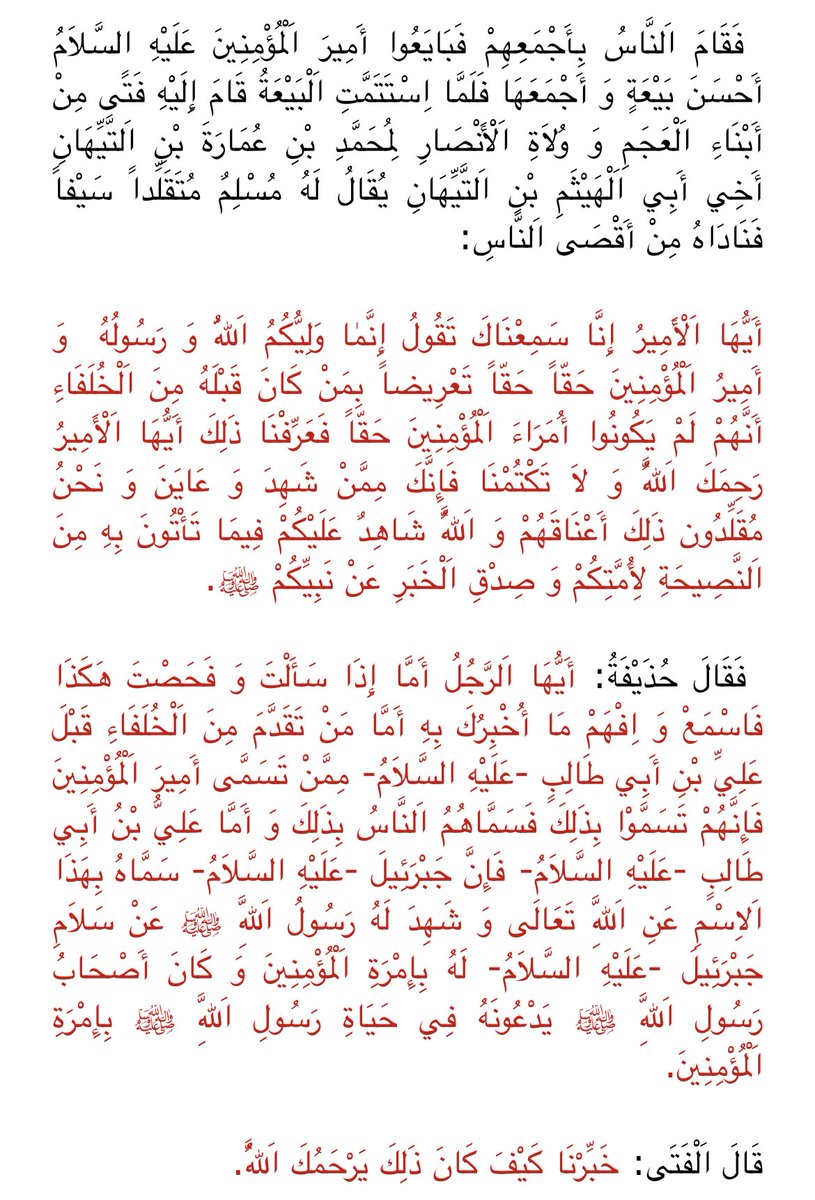 فَقَامَ اَلنَّاسُ بِأَجْمَعِهِمْ فَبَايَعُوا أَمِيرَ اَلْمُؤْمِنِينَ عَلَيْهِ السَّلاَمُ
أَحْسَنَ بَيْعَةٍ وَ أَجْمَعَهَا فَلَمَّا اِسْتَتَمَّتِ اَلْبَيْعَةُ قَامَ إِلَيْهِ فَتًى مِنْ
أَبْنَاءِ اَلْعَجَمِ وَ وُلاَةِ اَلْأَنْصَارِ لِمُحَمَّدِ بْنِ عُمَارَةَ بْنِ اَلتَّيِّهَانِ
أَخِي أَبِي اَلْهَيْثَمِ بْنِ اَلتَّيِّهَانِ يُقَالُ لَهُ مُسْلِمٌ مُتَقَلِّداً سَيْفاً
فَنَادَاهُ مِنْ أَقْصَى اَلنَّاسِ:
أَيُّهَا اَلْأَمِيرُ إِنَّا سَمِعْنَاكَ تَقُولُ إِنَّمٰا وَلِيُّكُمُ اَللّٰهُ وَ رَسُولُهُ وَ
أَمِيرُ اَلْمُؤْمِنِينَ حَقّاً حَقّاً تَعْرِيضاً بِمَنْ كَانَ قَبْلَهُ مِنَ اَلْخُلَفَاءِ
أَنَّهُمْ لَمْ يَكُونُوا أُمَرَاءَ اَلْمُؤْمِنِينَ حَقّاً فَعَرِّفْنَا ذَلِكَ أَيُّهَا اَلْأَمِيرُ
رَحِمَكَ اَللَّهُ وَ لاَ تَكْتُمْنَا فَإِنَّكَ مِمَّنْ شَهِدَ وَ عَايَنَ وَ نَحْنُ
مُقَلِّدُون ذَلِكَ أَعْنَاقَهُمْ وَ اَللَّهُ شَاهِدٌ عَلَيْكُمْ فِيمَا تَأْتُونَ بِهِ مِنَ
اَلنَّصِيحَةِ لِأُمَّتِكُمْ وَ صِدْقِ اَلْخَبَرِ عَنْ نَبِيِّكُمْ ﷺ.
فَقَالَ حُذَيْفَةُ: أَيُّهَا اَلرَّجُلُ أَمَّا إِذَا سَأَلْتَ وَ فَحَصْتَ هَكَذَا
فَاسْمَعْ وَ اِفْهَمْ مَا أُخْبِرُكَ بِهِ أَمَّا مَنْ تَقَدَّمَ مِنَ اَلْخُلَفَاءِ قَبْلَ
عَلِيِّ بْنِ أَبِي طَالِبٍ -عَلَيْهِ السَّلاَمُ- مِمَّنْ تَسَمَّى أَمِيرَ اَلْمُؤْمِنِينَ
فَإِنَّهُمْ تَسَمَّوْا بِذَلِكَ فَسَمَّاهُمُ اَلنَّاسُ بِذَلِكَ وَ أَمَّا عَلِيُّ بْنُ أَبِي
طَالِبٍ -عَلَيْهِ السَّلاَمُ- فَإِنَّ جَبْرَئِيلَ -عَلَيْهِ السَّلاَمُ- سَمَّاهُ بِهَذَا
اَلاِسْمِ عَنِ اَللَّهِ تَعَالَى وَ شَهِدَ لَهُ رَسُولُ اَللَّهِ ﷺ عَنْ سَلاَمِ
جَبْرَئِيلَ -عَلَيْهِ السَّلاَمُ- لَهُ بِإِمْرَةِ اَلْمُؤْمِنِينَ وَ كَانَ أَصْحَابُ
رَسُولِ اَللَّهِ ﷺ يَدْعُونَهُ فِي حَيَاةِ رَسُولِ اَللَّهِ ﷺ بِإِمْرَةِ
اَلْمُؤْمِنِينَ.
قَالَ اَلْفَتَى: خَبِّرْنَا كَيْفَ كَانَ ذَلِكَ يَرْحَمُكَ اَللَّهُ.